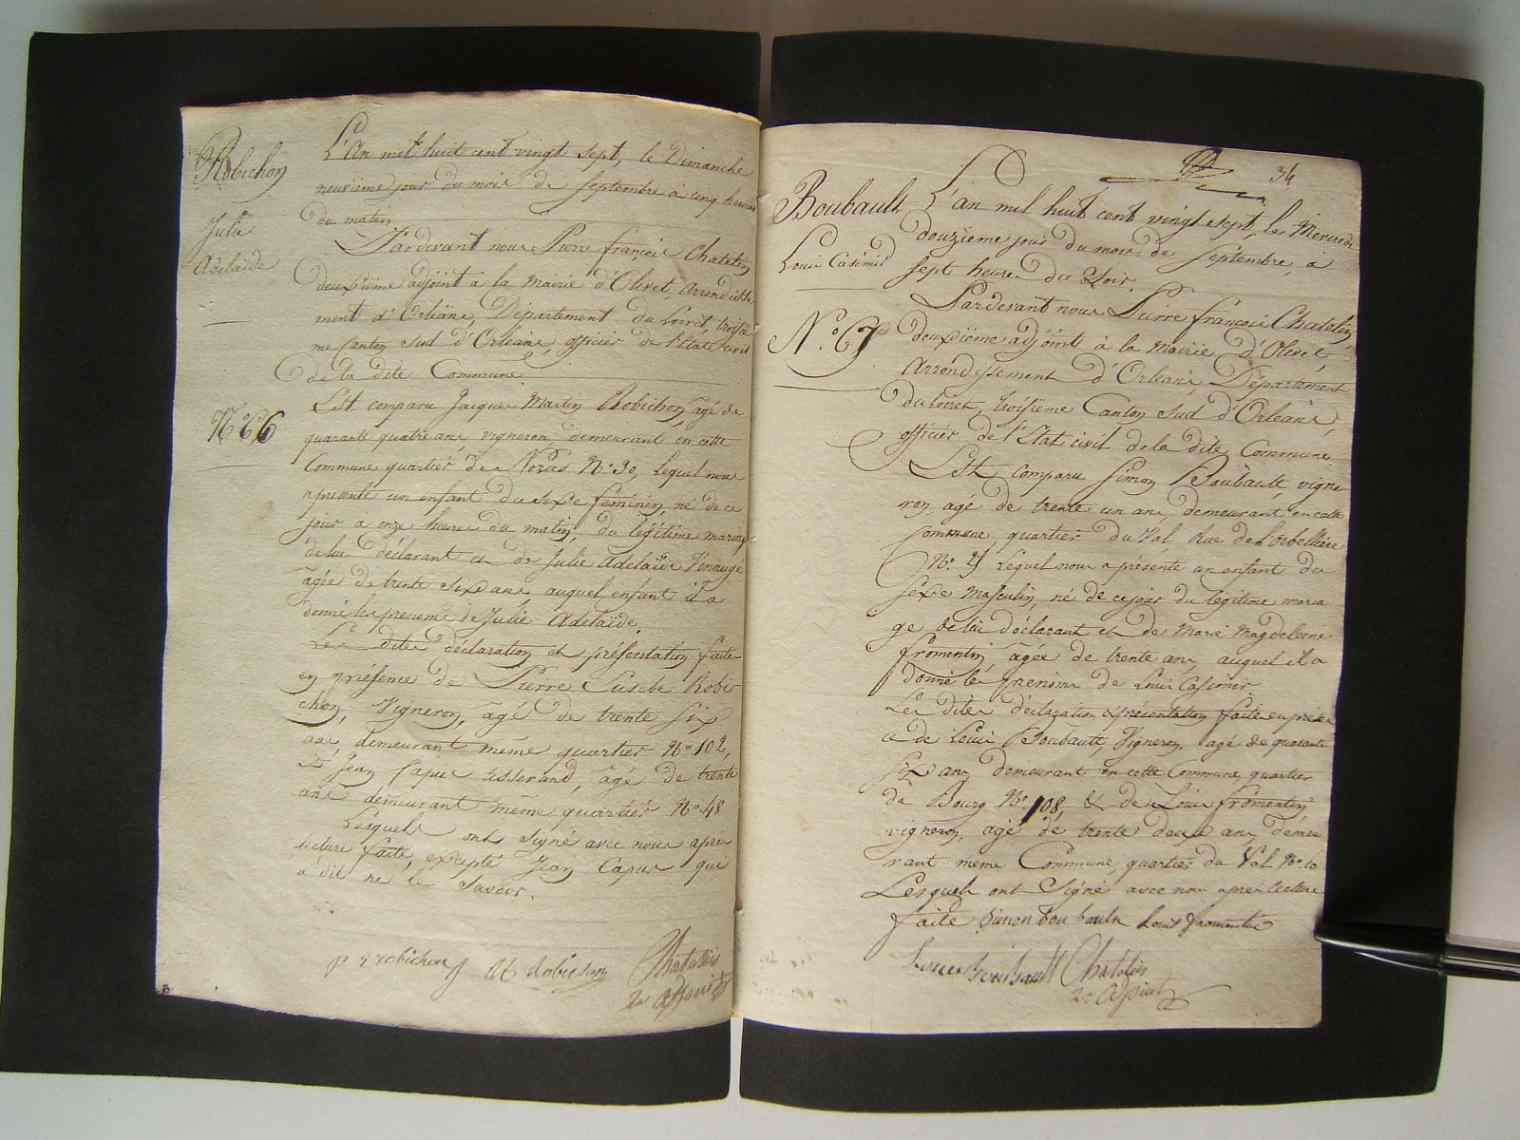 Robichon
Julie
Adelaïde
N° 66
L'An mil huit cent vingt sept, le Dimanche
neuvième jour du mois de Septembre à cinq heures
du matin
Pardevant nous Pierre françois Chatelin
deuxième adjoint a la Mairie d'Olivet, Arrondisse
ment d'Orléans, Département du Loiret, troisiè
me Canton Sud d'Orléans, officier de l'Etat civil
de la dite Commune.
Est comparu Jacques Martin Robichon, agé de
quarante quatre ans, vigneron, demeurant en cette
Commune quartier de N° 30, Lequel nous
a présenté un enfant du Sexe féminin, né de ce
jour a onze heures du matin, du légitime mariage
de lui déclarant et de Julie Adelaïde
âgée de trente Six ans auquel enfant il a
donné les prenoms de Julie Adelaïde.
Les dites déclaration et présentation faite
en présence de Pierre Eusebe Robi-
chon, Vigneron, âgé de trente Six
ans, demeurant même quartier N° 102,
Et Jean Capus tisserand, âgé de trente
ans demeurant même quartier N° 48
Lesquels ont signé avec nous apres
lecture faite, excepté Jean Capus qui
a dit ne le Savoir.
p e robichon robichon Chatelin
2e adjoint
34
Boubault
Louis Casimir
N° 67
L'an mil huit cent vingt sept, le Mercredi
douzieme jour du mois de Septembre, à
sept heures du Soir.
Pardevant nous Pierre françois Chatelin,
deuxième adjoint à la Mairie d'Olivet
Arrondissement d'Orléans, Département
du Loiret, troisième Canton Sud d'Orléans,
officier de l'Etat civil de la dite Commune
Est comparu Simon Boubault, vigne
ron, agé de trente un ans, demeurant en cette
commune, quartier du Val Rue de
N° 21 Lequel nous a présenté un enfant du
Sexe Masculin, né de ce jour du légitime maria
ge de lui déclarant et de Marie Magdeleine
fromentin, âgée de trente ans, auquel il a
donné les prenoms de Louis Casimir
Les dites déclaration et présentation faite en présen
ce de Louis Boubault, Vigneron, agé de quarante
Six ans demeurant en cette Commune, quartier
de Bourg N° 108, & de Louis fromentin
vigneron, agé de trente deux ans, demeu
rant même Commune, quartier du Val N° 10
Lesquels ont Signé avec nous apres lecture
faite Simon Boubault Louis fromentin
Louis Boubault Chatelin
2e adjoint